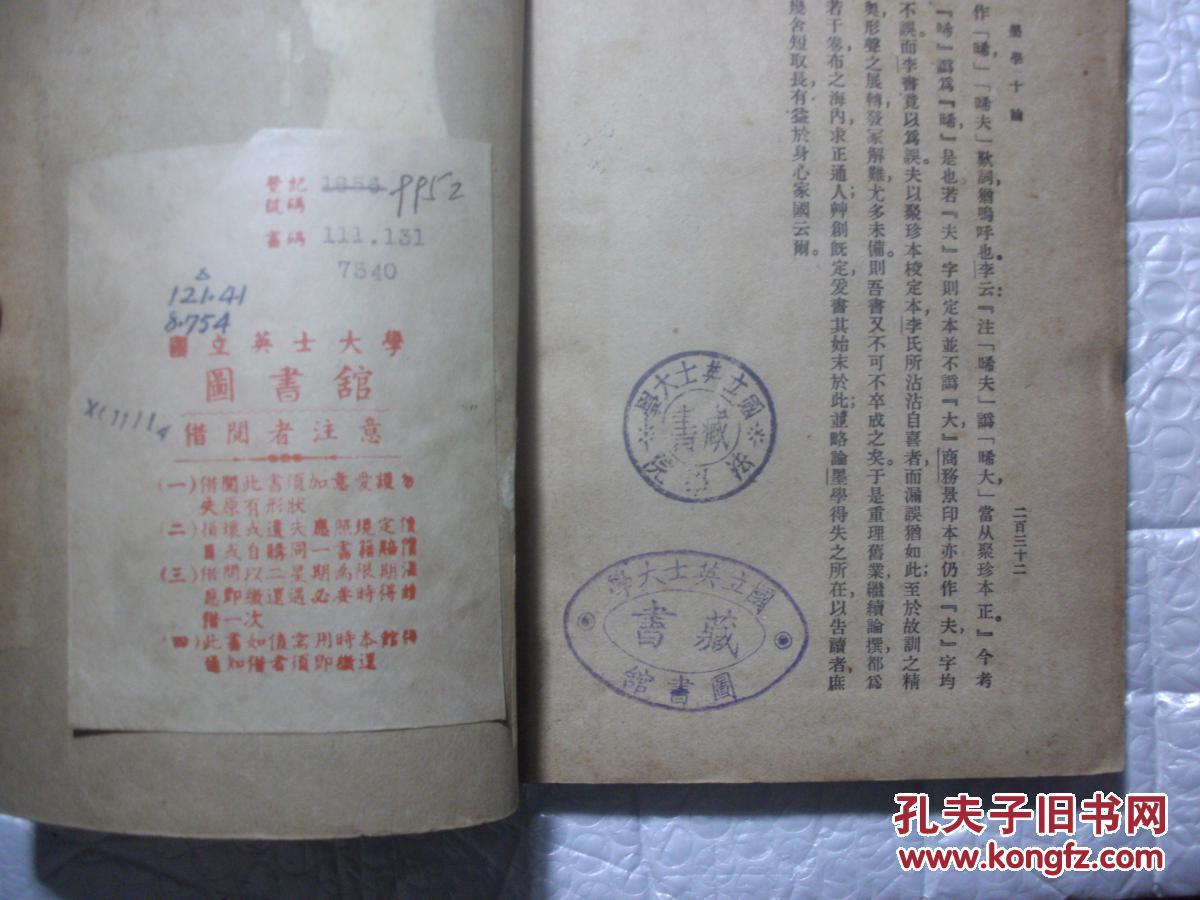 登記號碼 1856 9952
書碼 111.131
7340
121.41
8.754
國立英士大學
圖書舘
借閱者注意
(一)借閱此書須加意愛護勿
失原有形狀
(二)借壞或遺失應照規定價
目或自購同一書籍賠償
(三)借閱以二星期為限期滿
應即繳還遇必要時得續
借一次
(四)此書如值需用時本館得
通知借書須即繳還
墨學十論
二百三十二
作「晞」「晞夫」歎詞猶嗚呼也。李云:『注「晞夫」譌「晞大」當从聚珍本正。』今考
『晞』譌爲『晞』是也若『夫』字則定本並不譌『大』商務景印本亦仍作『夫』字均
不誤而李書竟以爲誤。夫以聚珍本校定本,李氏所沾沾自喜者,而漏誤猶如此;至於故訓之精
奧,形聲之展轉,發冢解難,尤多未備。則吾書又不可不卒成之矣。于是重理舊業,繼續論撰,都爲
若干卷,布之海內,求正通人;艸創旣定,爰書其始末於此;並略論墨學得失之所在,以告讀者,庶
幾舍短取長,有益於身心家國云爾。
國立英士大學
藏書
法院
國立英士大學
藏書
圖書館
孔夫子旧书网
www.kongfz.com